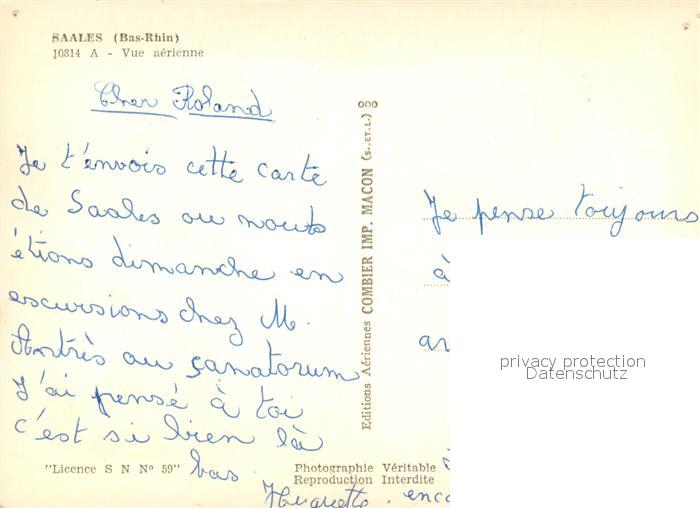 SAALES (Bas-Rhin)
10814 A - Vue aérienne
Cher Roland
Je t'envois cette carte
de Saales ou nouts
étions dimanche en
escursions chez M.
Antrès au sanatorum
J'ai pensé à toi
c'est si bien là
bas.
Huguette
"Licence S N N° 59"
Photographie Véritable
Reproduction Interdite
Editions Aériennes COMBIER IMP. MACON (S.-ET-L.)
Je pense toujours
à
privacy protection
Datenschutz